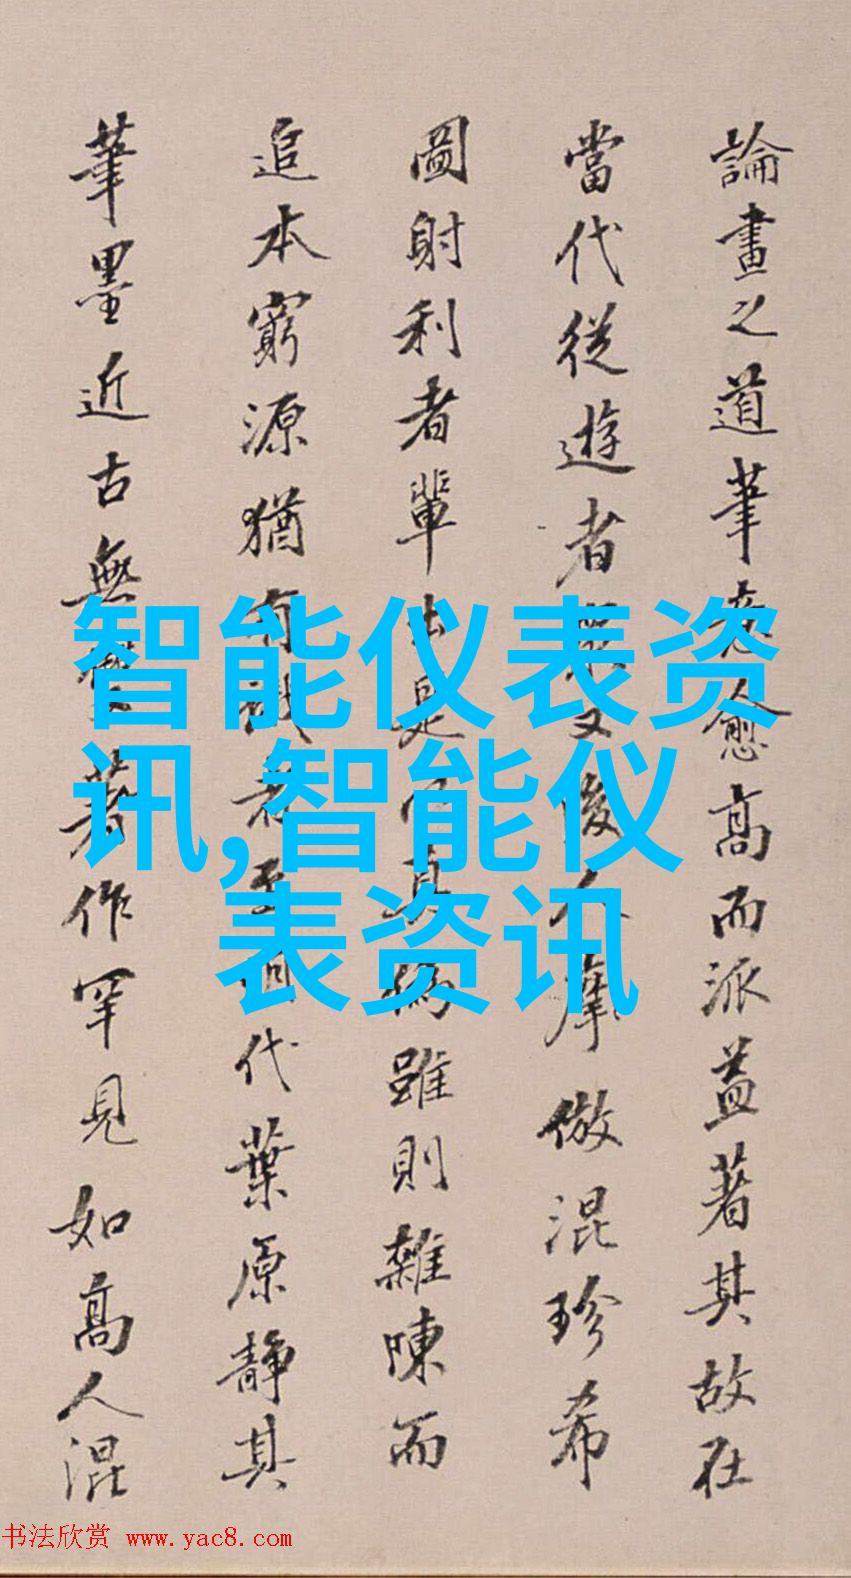 論畫之道筆愈高而派益著其故在
當代從遊者又後人摹倣混珍希
圖射利者輩出是真偽雖則雜陳而
追本窮源猶有識者代葉原靜其
筆墨近古無著作罕見如高人混
智能仪表资
讯,智能仪
表资讯
书法欣赏 www.yac8.com